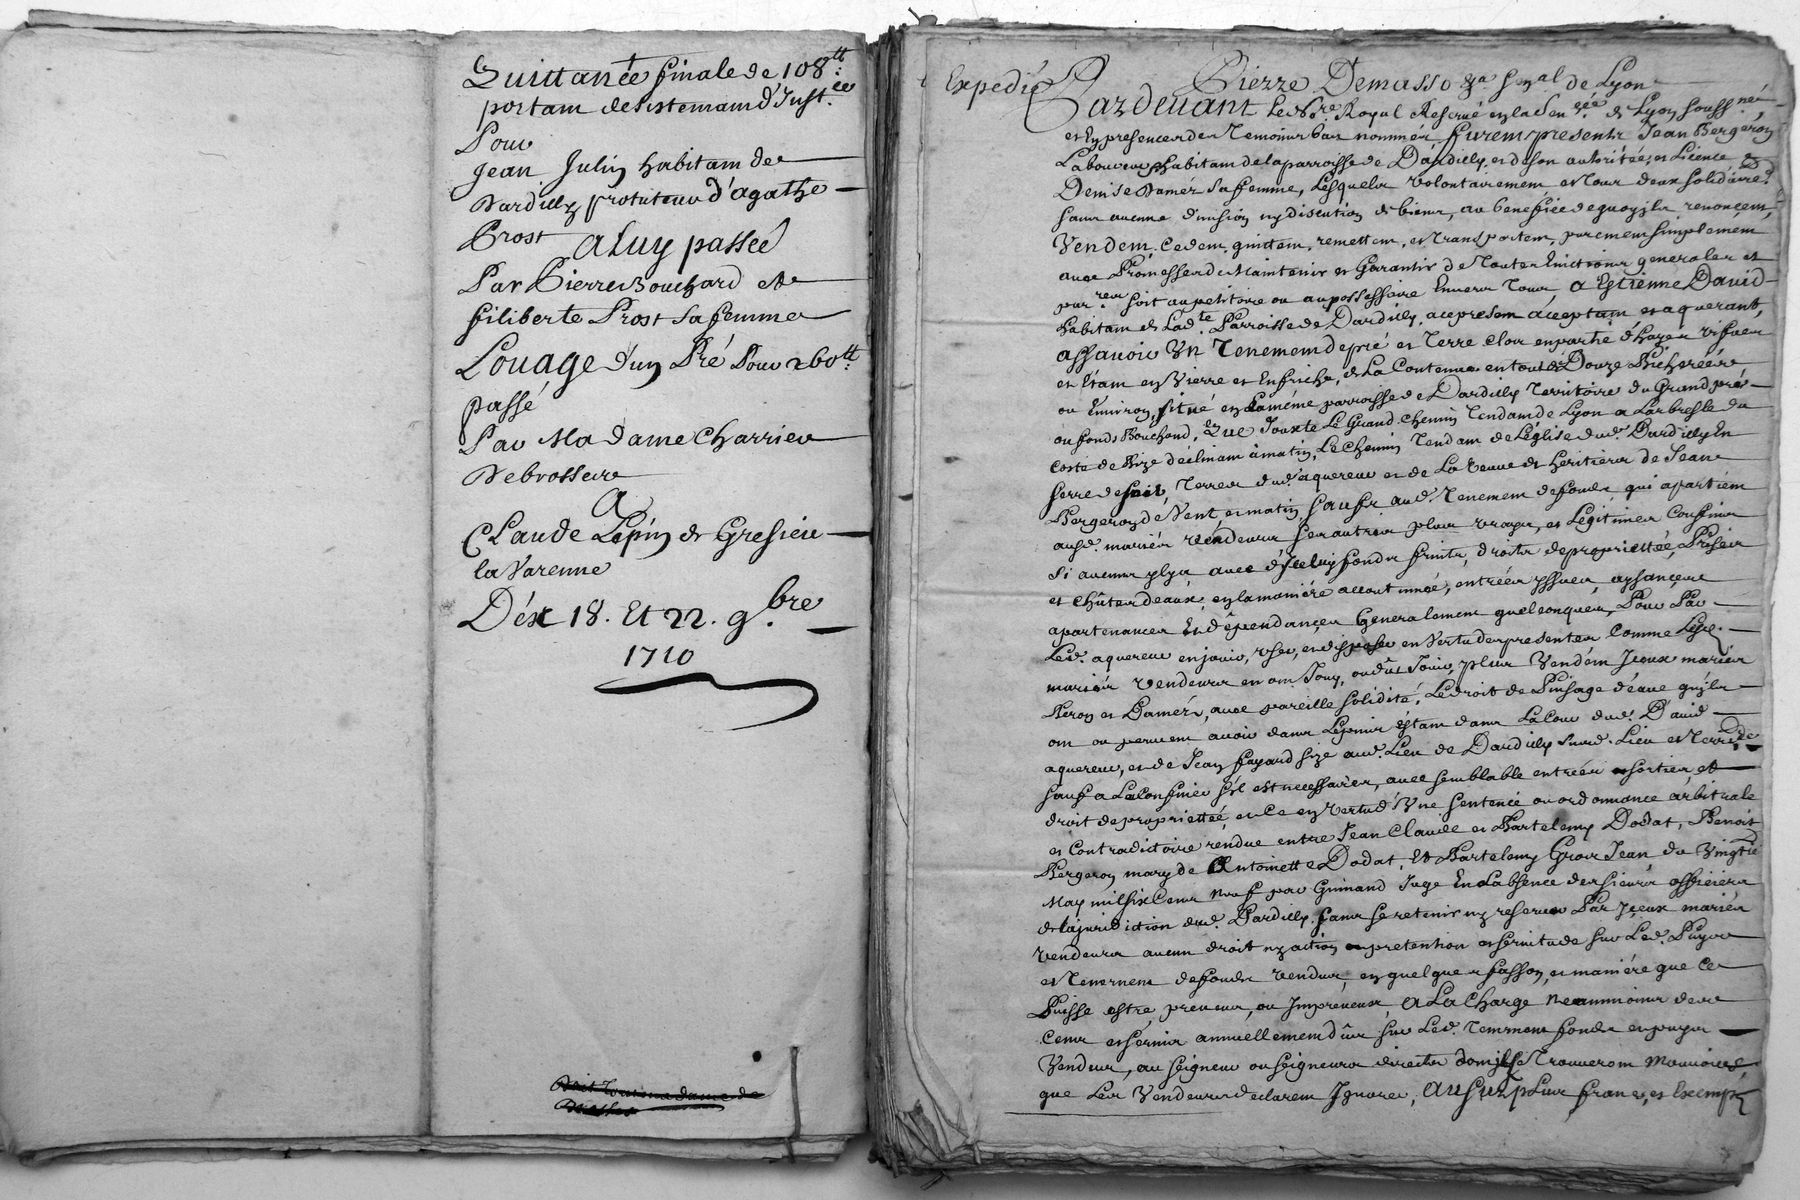 Quittance finale de 108tt.
portam desistemam d'Just.ce
Pour
Jean Julin habitam de
Dardilly protuteur d'agathe
Prost aluy passeé
Par Pierre Bouchard et
filiberte Prost sa femme
Louage d'un Pré Pour 260tt.
passé
Par Madame Charrier
Debrosse
A
Claude Lepin de Gresieu
la Varenne
Dés 18. Et 22. 9.bre
1710
Expedié
Pierre Demasso
de Lyon
Pardevant Le No.re Royal Reservé en la Sen.cée de Lyon souss.né
et En presence des Temoins bas nommés, furem presents Jean Bergeron
Laboureur habitam de la parroisse de Dardilly, et de son autorité et Licence
Denise Damés sa femme, Lesquels volontairement et Tous deux solidaire.
sans aucune division ny discution de biens, au benefice de quoy ils renonçem,
Vendem, Cedem, quittem, remettem, et Transportem, purement simplement
avec Promesse de Maintenir et Garantir de Toutes Evictions generales et
soit au petitoire ou au possessoire Envers Tous, a Estienne David
habitam de Lad.te Parroisse de Dardilly, acepresem acceptam et aquerant,
assavoir Un Tenemem de pré et Terre clos en partie d'hayes vifves
et Estam en Vierre et Enfriche, de La Contenue en tout de Douze Bicherées
ou Environ, situé en La méme parroisse de Dardilly Territoire du Grand pré
ou fonds Bouchard, Que Jouxte Le Grand chemin Tendam de Lyon a Larbresle du
costé de Bize declinam a matin, Le Chemin Tendam de L'église dud. Dardilly En
serre de soir, Terres dud. aquereur et de La Veuve et heritiers de Jean
Bergeron de Vent et matin, sauf aud. Tenement de fonds qui apartiem
ausd. mariés vendeurs ses autres plus vrayes et Legitimes Confins
si aucuns y a, avec d'Iceluy fonds fruits, droits de proprietteé, Prises
et chûtes deaux, en la maniére accoutumée, entrées yssues, aysances
apartenances Et dépendances Generalement quelconques, Pour Par
Led. aquereur en jouir, user, et disposer en Vertu des presentes Comme Lesd.
mariés Vendeurs en om Jouy, ou dû Jouir, plus Vendem Jceux mariés
Beron et Damés, avec pareille solidité, Le droit de Puisage d'eaue qu'ils
om ou peuvem avoir dans Le puis estam dans La Cour dud. David
aquereur, et de Jean fayard size aud. Lieu de Dardilly
sauf a La Confiner s'il est necessaire, avec semblable entrées sorties, et
droit de proprietteé, en Ce en vertu d'Une sentence ou ordonnance arbitrale
et Contradictoire rendue entre Jean Claude et Bartelemy Dodat, Benoist
Bergeron mary de Antoinette Dodat, Et Bartelemy Gros Jean du Vingt
May mil six Cens Neuf par Guinand Juge En L'absence des sieurs officiers
de la juridiction dud. Dardilly, sans se retenir ny reserver Par Jceux mariés
vendeurs aucun droit ny action pretention et servitude sur Led. Puys
et Tenement de fonds vendus, en quelques fasson, et maniére que Ce
Puisse estre, preveus, ou Jmpréveus, A La Charge Neanmoins de
Cens et servis annuellement dûs sur Led. Tenement fonds et puys
Vendus, au seigneur ou seigneurs directes Trouverom Mouvoirs,
que Les Vendeurs declarem Jgnorer, Au surplus franc, et Exempt